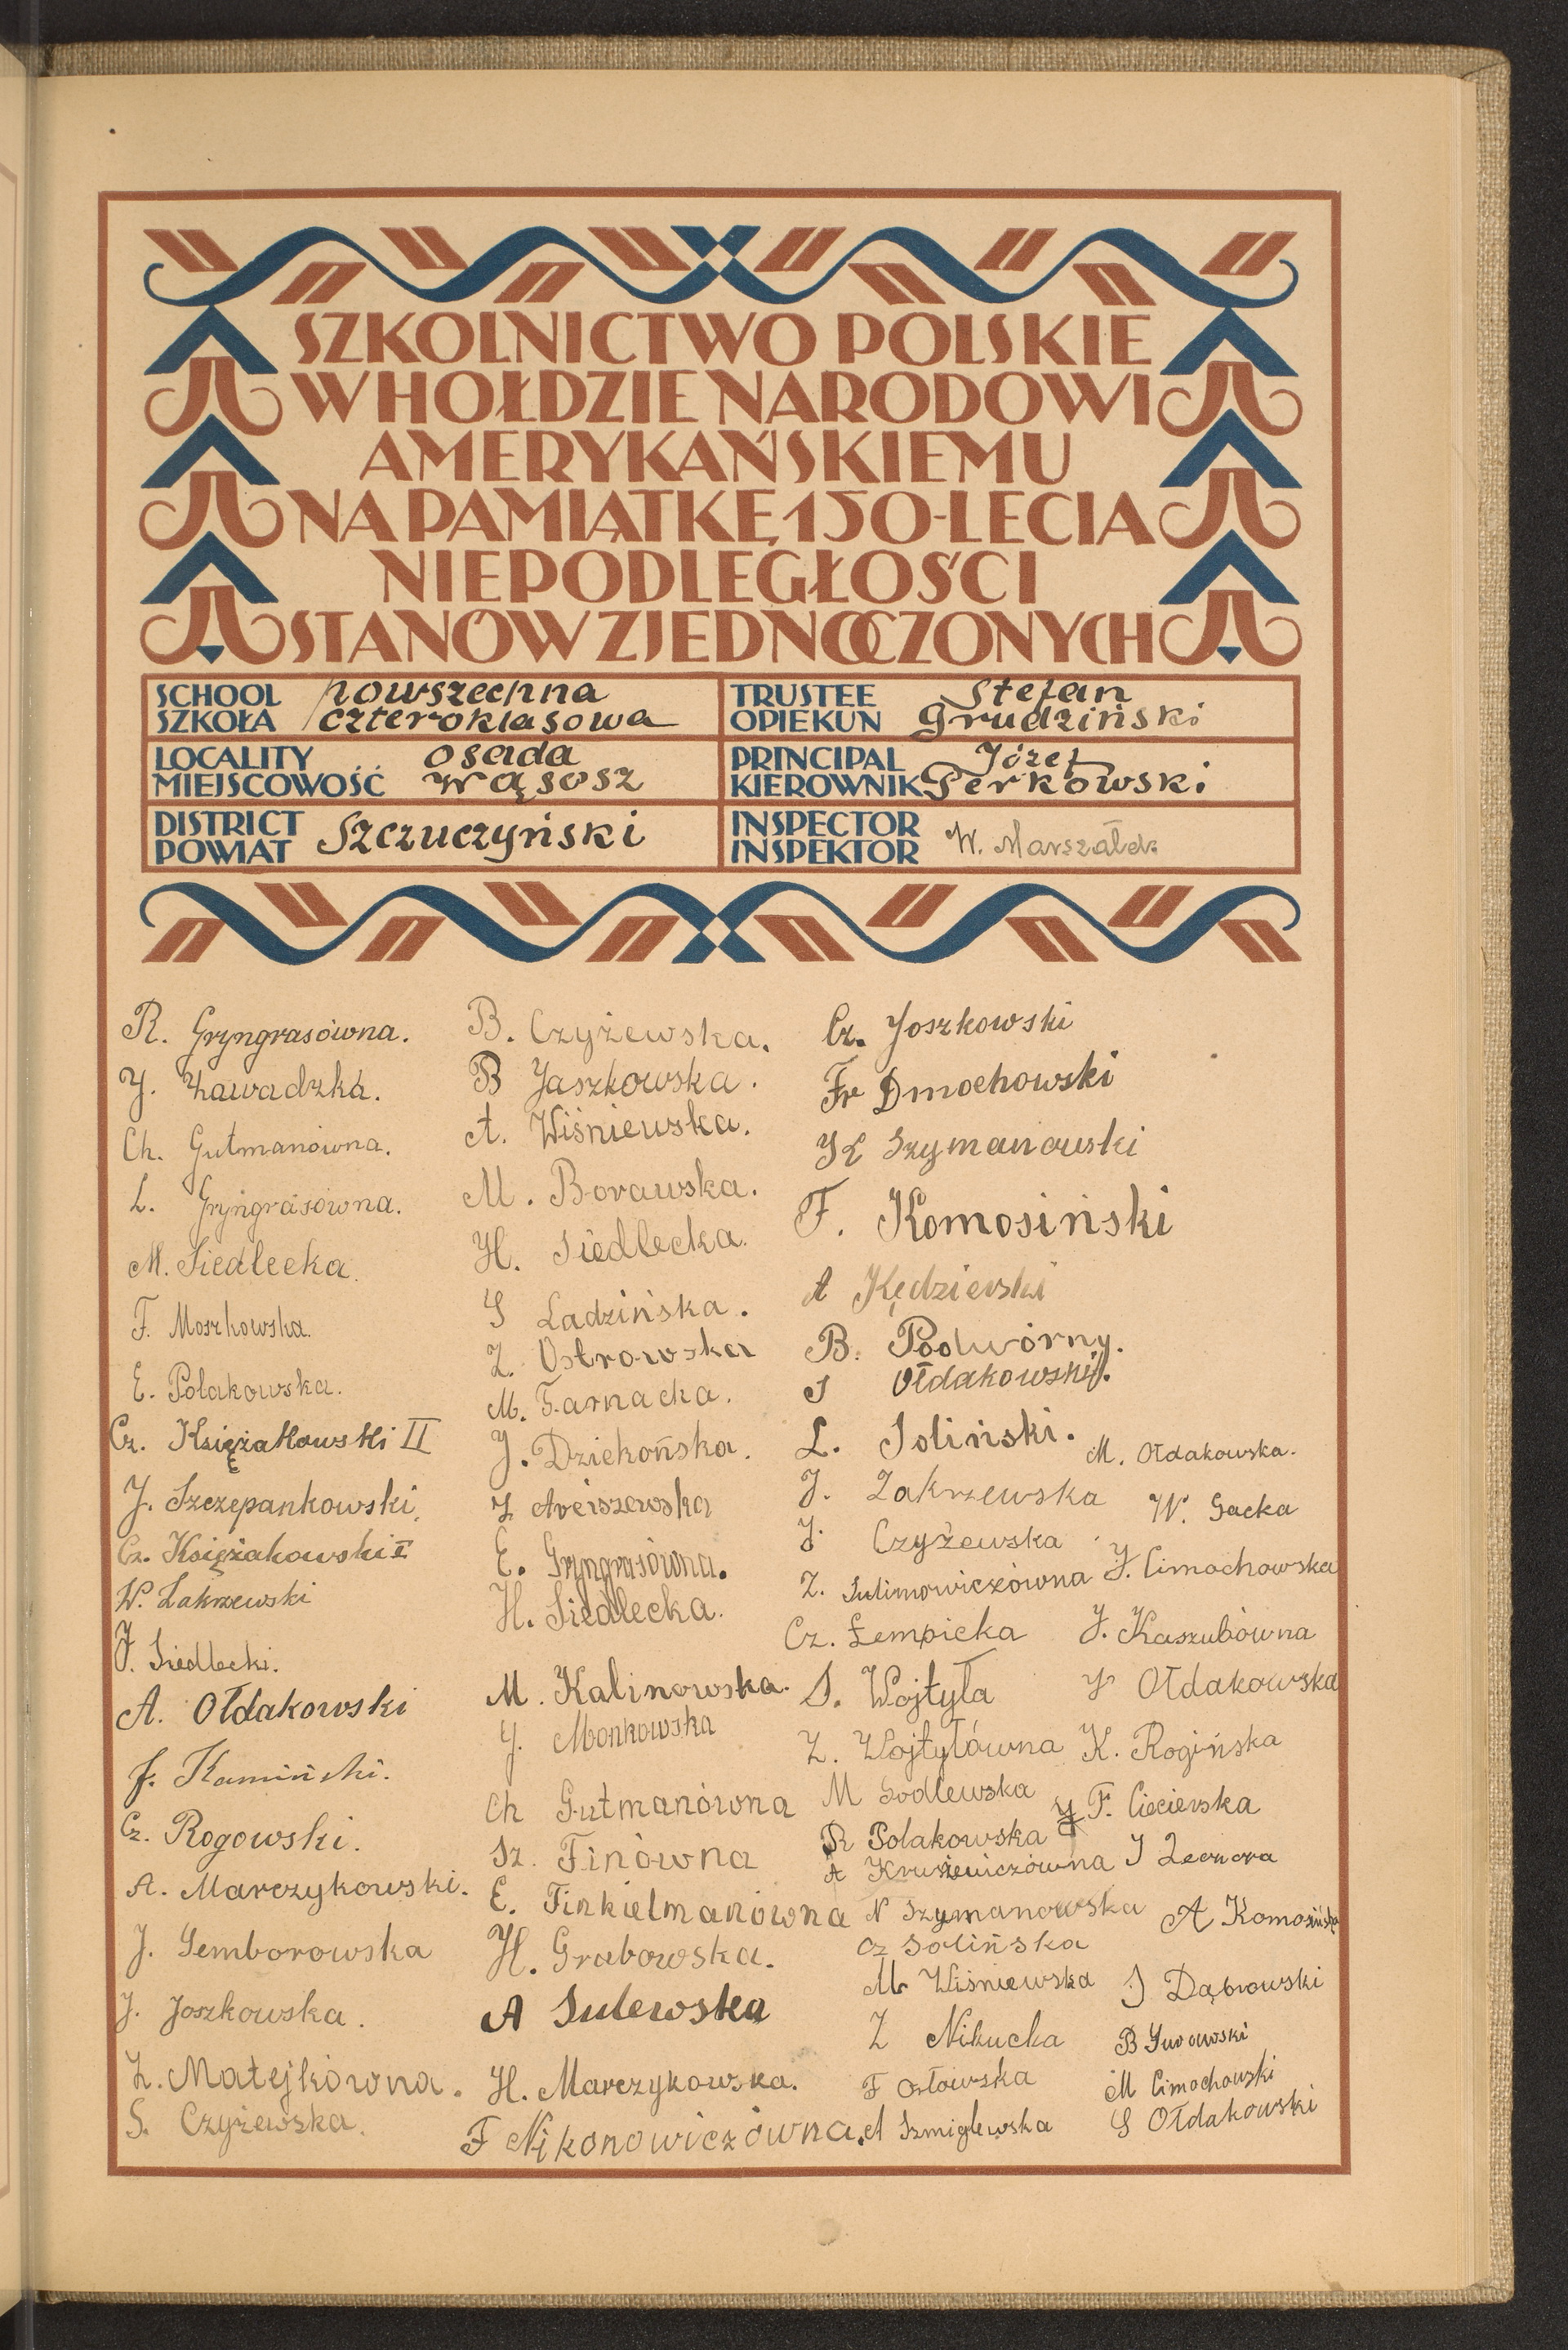 SZKOLNICTWO POLSKIE
W HOŁDZIE NARODOWI
AMERYKAŃSKIEMU
NA PAMIĄTKĘ 150-LECIA
NIEPODLEGŁOŚCI
STANÓW ZJEDNOCZONYCH
SCHOOL
SZKOŁA
powszechna
czteroklasowa
TRUSTEE
OPIEKUN
Stefan
Grudziński
LOCALITY
MIEJSCOWOŚĆ
osada
Wąsosz
PRINCIPAL
KIEROWNIK
Józef
Perkowski
DISTRICT
POWIAT
Szczuczyński
INSPECTOR
INSPEKTOR
W. Marszałek
R. Gryngrasówna.
J. Zawadzka.
Ch. Gutmanówna.
L. Gryngrasówna.
M. Siedlecka.
F. Moszkowska.
E. Polakowska.
Cz. Księżakowski II
J. Szczepankowski.
Cz. Księżakowski I
W. Zakrzewski
J. Siedlecki.
A. Ołdakowski
J. Kamiński.
Cz. Rogowski.
A. Marczykowski.
J. Semborowska
J. Joszkowska.
Z. Matejkówna.
S. Czyżewska.
B. Czyżewska.
B Jaszkowska.
A. Wiśniewska.
M. Borawska.
H. Siedlecka.
S Ladzińska.
Z. Ostrowska
M. Garnacka.
J. Dziekońska.
E. Gryngrasówna.
H. Siedlecka.
M. Kalinowska.
J. Monkowska
Ch Gutmanówna
Sz. Finówna
E. Finkielmanówna
H. Grabowska.
A Sulewska
H. Marczykowska.
F Nikonowiczówna.
Cz. Joszkowski
Fr Dmochowski
Szymanowski
F. Komosiński
A Kędzierski
B. Podwórny.
J Ołdakowski.
L. Soliński.
J. Zakrzewska
J. Czyżewska
Z. Sulimowiczówna
Cz. Łempicka
S. Wojtyła
Z. Wojtyłówna
M Godlewska
R Polakowska
A Krusiewiczówna
N Szymanowska
Cz Solińska
M. Wiśniewska
Z Nikucka
F Osłowska
A Szmiglewska
M. Ołdakowska.
W. Gacka
J. Cimochowska
J. Kaszubówna
J Ołdakowska
K. Rogińska
F. Ciecierska
A Komosińska
J Dąbrowski
B Surowski
M Cimochowski
S Ołdakowski